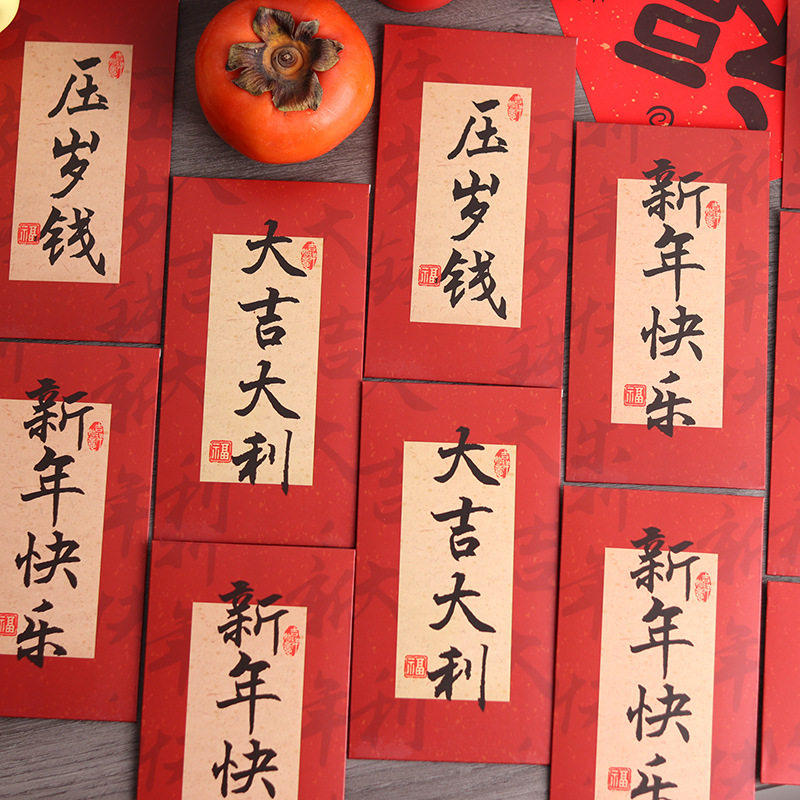 压岁钱
大吉大利
压岁钱
新年快乐
新年快乐
新年快
大吉大利
新年快乐
福
福
福
福
福
福
福